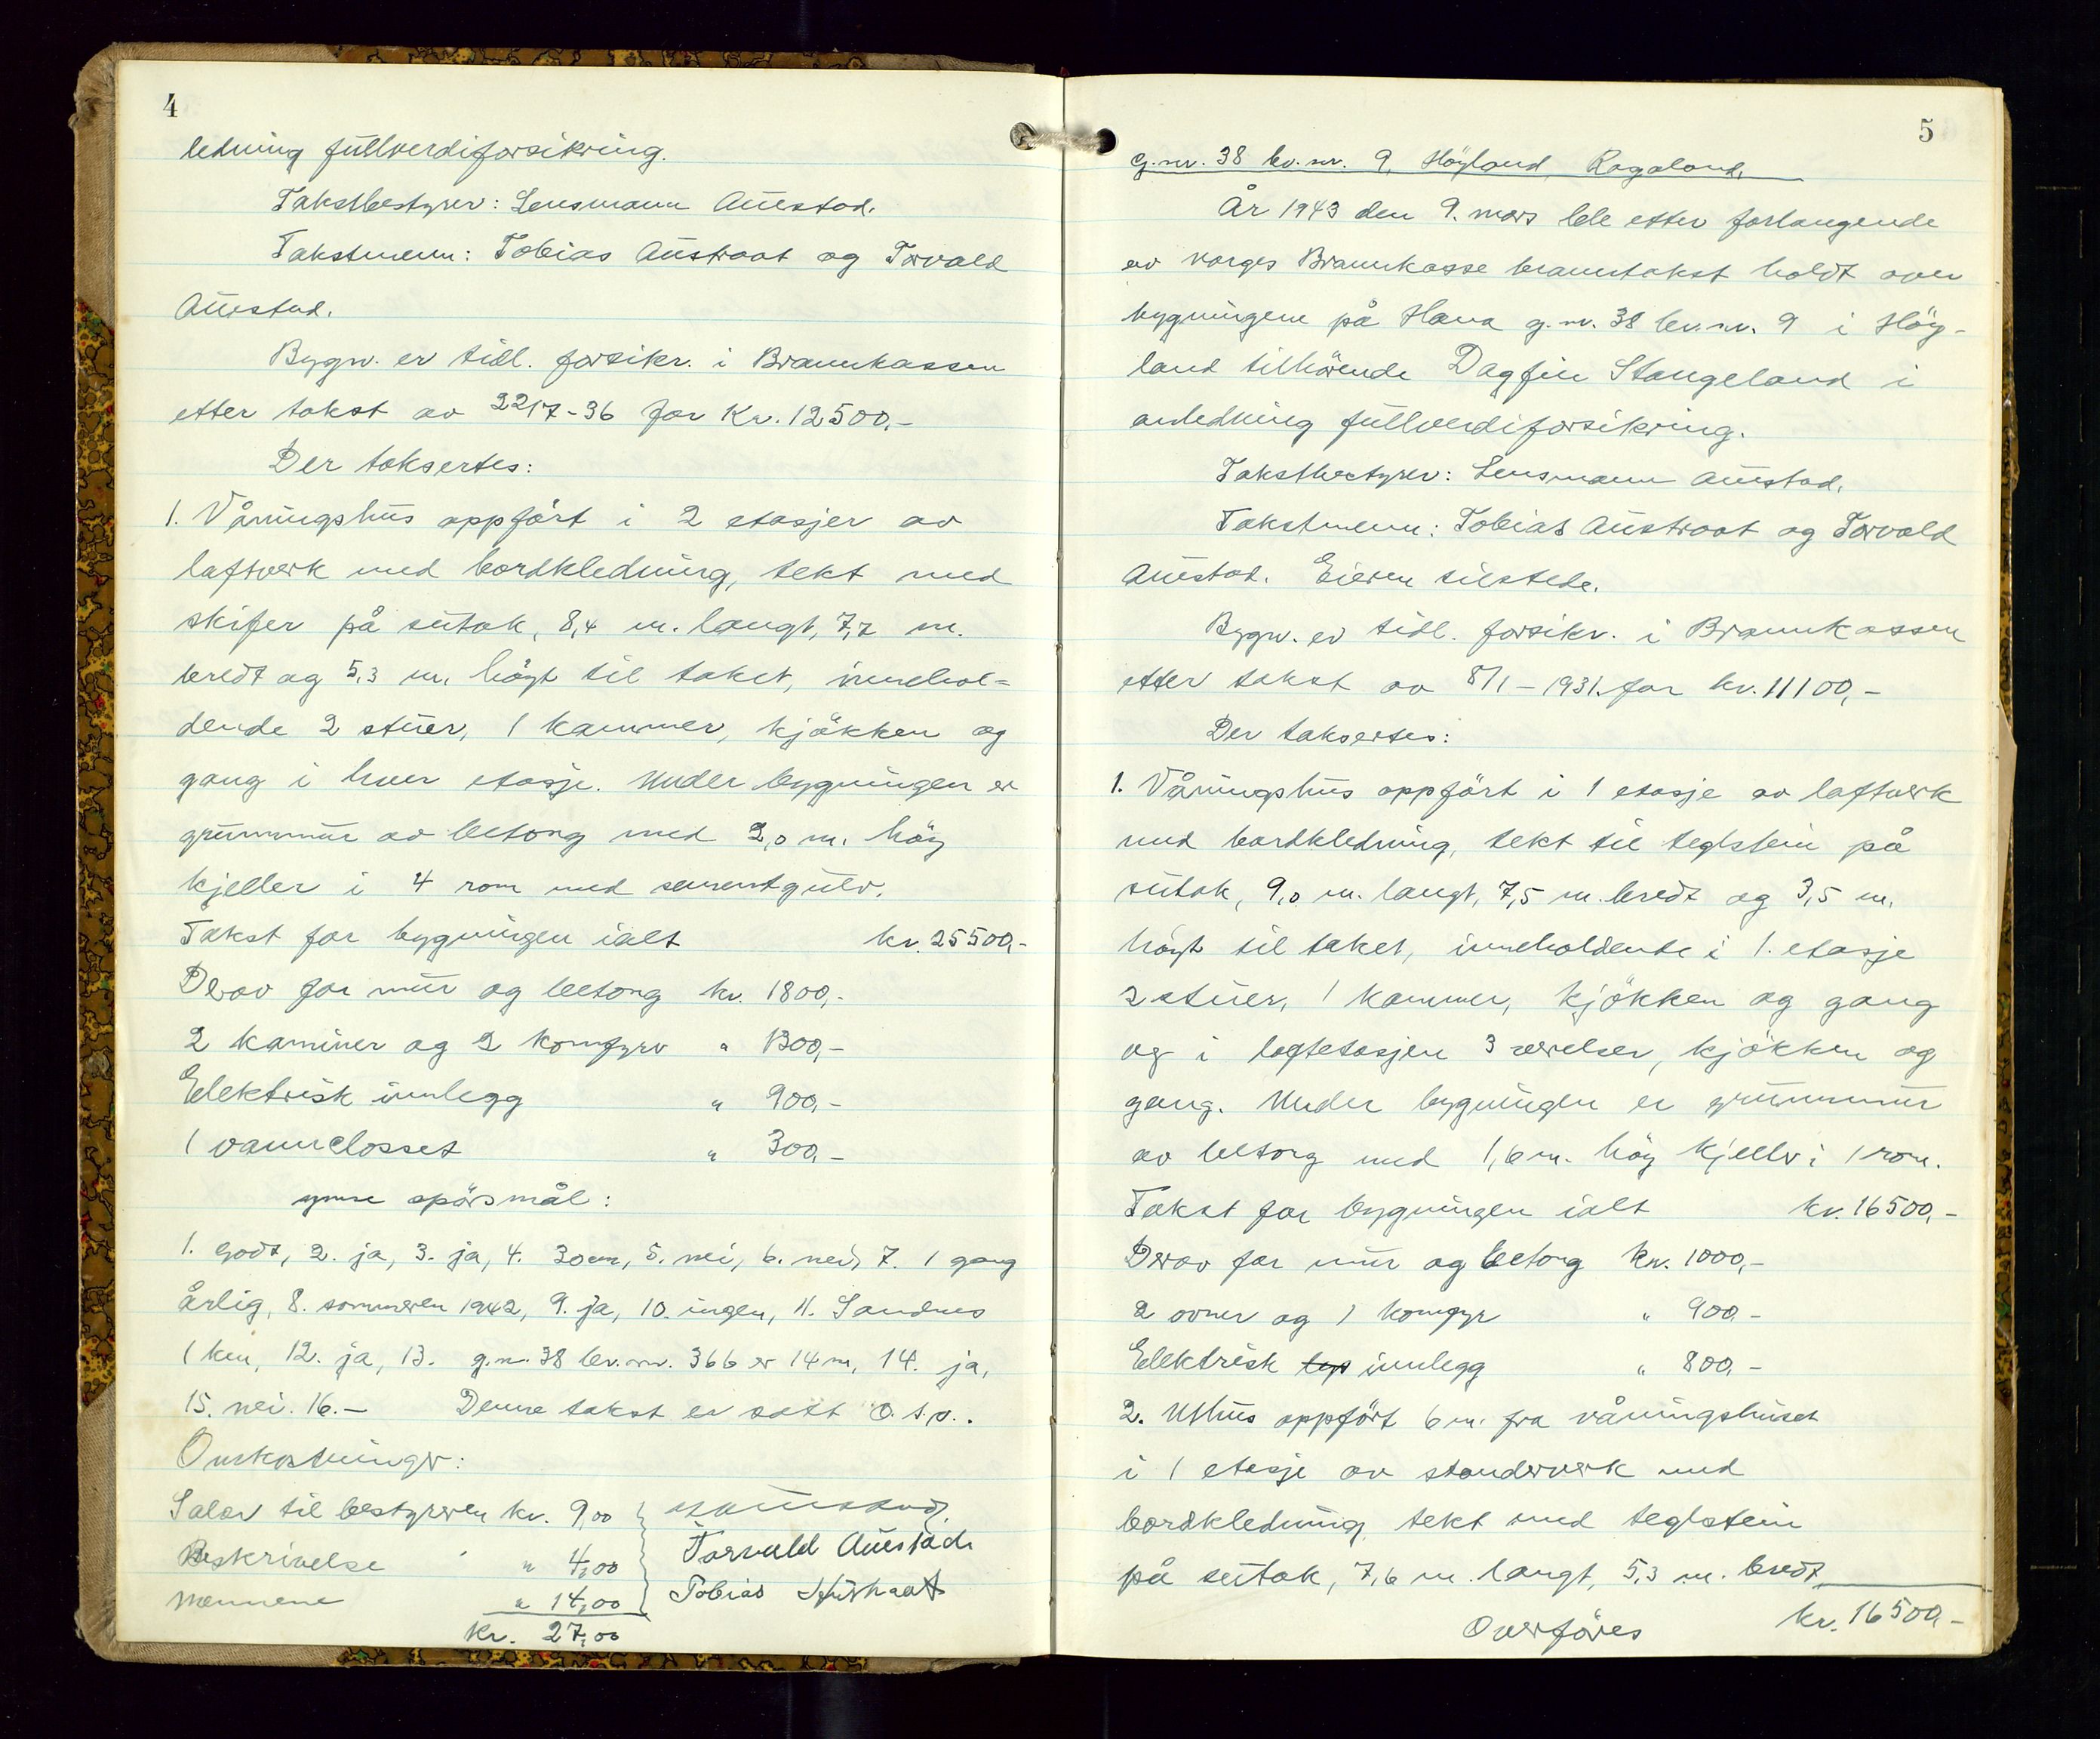 4
ledning fullverdiforsikring.
Takstbestyrer: Lensmann Auestad.
Takstmenn: Tobias Austraat og Torvald
Auestad.
Bygn. er tidl. forsikr. i Brannkassen
etter takst av 22/7-36 for Kr. 12500,-
Der taksertes:
1. Våningshus oppfört i 2 etasjer av
laftverk med bordkledning, tekt med
skifer på sutak, 8,4 m. langt, 7,7 m.
bredt og 5,3 m. högt til taket, innehol-
dende 2 stuer, 1 kammer, kjökken og
gang i hver etasje. Under bygningen er
grunnmur av betong med 2,0 m. höy
kjeller i 4 rom med sementgulv.
Takst for bygningen ialt kr. 25500,-
Derav for mur og betong kr. 1800,-
2 kaminer og 2 komfyrer " 1300,-
Elektrisk innlegg " 900,-
1 vannclosset " 300,-
ymse spörsmål:
1. godt, 2. ja, 3. ja, 4. 30cm, 5. nei, 6. nei, 7. 1 gang
årlig, 8. sommeren 1942, 9. ja, 10. ingen, 11. Sandnes
1 km, 12. ja, 13. g.nr. 38 br.nr. 366 er 14 m, 14. ja,
15. nei. 16.- Denne takst er satt o.s.v..
Omkostninger:
Salær til bestyreren kr. 9,00
Auestad
Beskrivelse " 4,00
Torvald Auestad
Mennene " 14,00
Tobias Austraat
kr. 27,00
5
G.nr. 38 br.nr. 9, Höyland, Rogaland.
År 1943 den 9. mars ble etter forlangende
av Norges Brannkasse branntakst holdt over
bygningene på Hana g.nr. 38 br.nr. 9 i Höy-
land tilhörende Dagfin Stangeland i
anledning fullverdiforsikring.
Takstbestyrer: Lensmann Auestad.
Takstmenn: Tobias Austraat og Torvald
Auestad. Eieren tilstede.
Bygn. er tidl. forsikr. i Brannkassen
etter takst av 8/1-1931 for kr. 11100,-
Der taksertes:
1. Våningshus oppfört i 1 etasje av laftverk
med bordkledning, tekt til teglstein på
sutak, 9,0 m. langt, 7,5 m. bredt og 3,5 m.
högt til taket, inneholdende i 1. etasje
2 stuer, 1 kammer, kjökken og gang
og i loftetasjen 3 værelser, kjökken og
gang. Under bygningen er grunnmur
av betong med 1,6 m. höy kjeller i 1 rom.
Takst for bygningen ialt kr. 16500,-
Derav for mur og betong kr. 1000,-
2 ovner og 1 komfyr " 900,-
Elektrisk innlegg " 800,-
2. Uthus oppfört 6 m. fra våningshuset
i 1 etasje av standerverk med
bordkledning tekt med teglstein
på sutak, 7,6 m. langt, 5,3 m. bredt,
Overföres kr. 16500,-